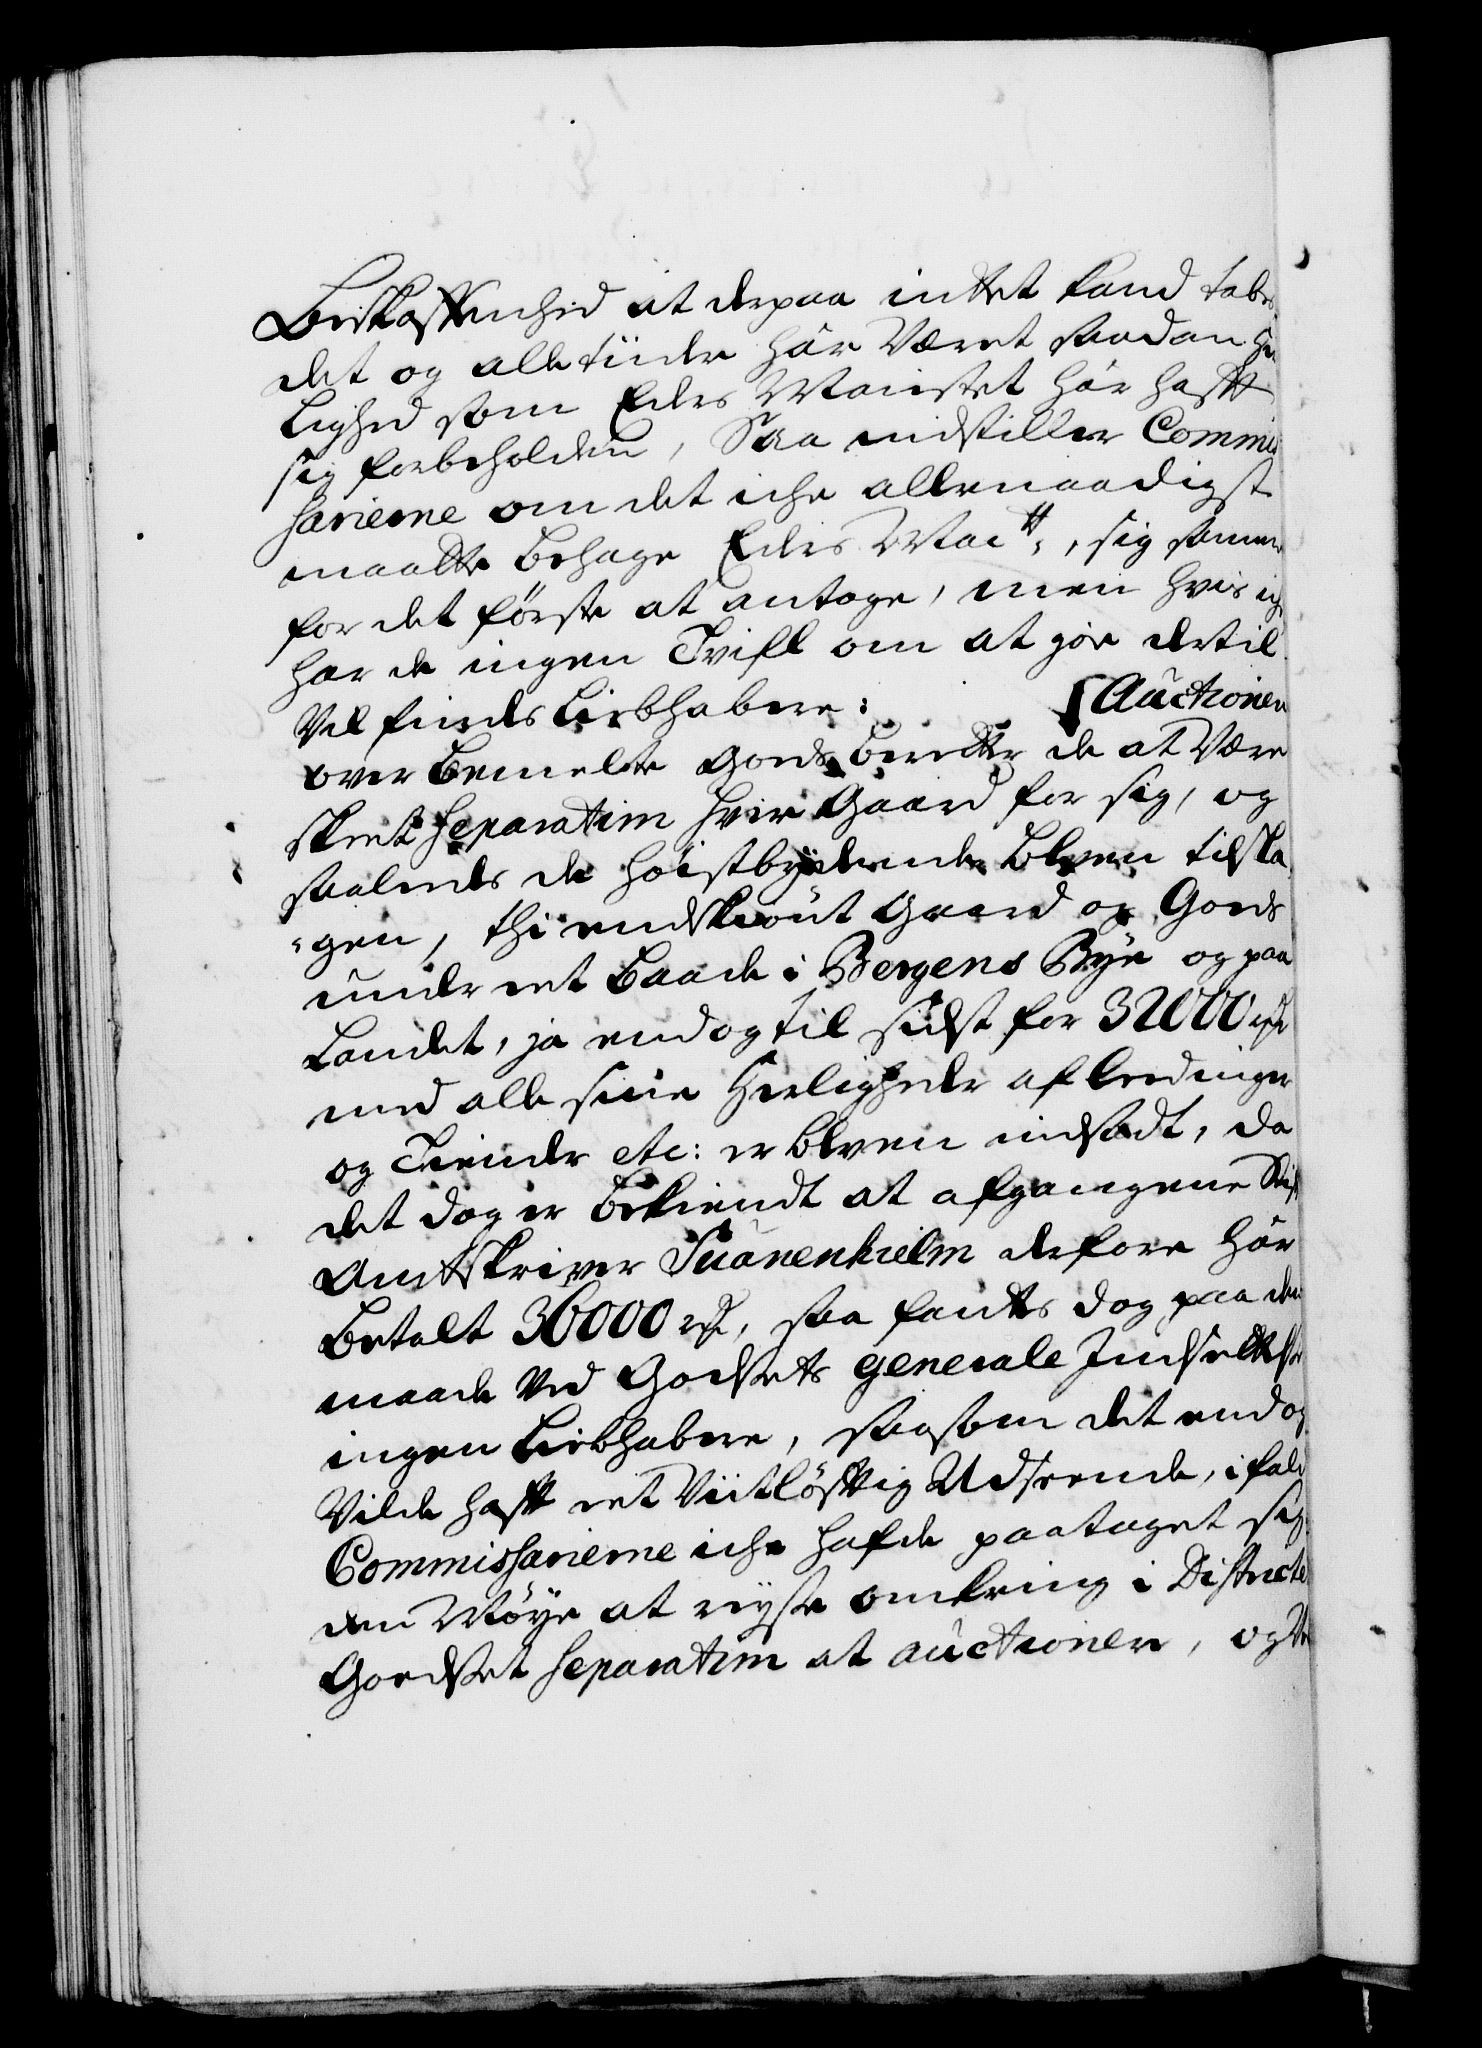 Beskaffenhed at derpaa indtet kand tabes
det og alle tiider hår været saadan Her
Lighed som Eders Maiestet hår hafft
sig forbeholden, Saa indstiller Commis
sarierne om det iche allernaadigst
maatte behage Eders Maitt:, sig samme
for det förste at antage, men hvis ich
har de ingen Tvifl om at jo dertil
Vel findes Liebhabere: [Auctionen
over bemelte Gods beretter de at Være
skeet separatim hver Gaard for sig, og
saaledes de höistbydende bleven tilsla
-gen, thi endskiönt Gaard og Gods
under eet baade i Bergens Bye og paa
Landet, ja endog til sidst for 32000 rdr
med alle sine Herligheder afleedinger
og Tiender etc: er bleven indsadt, da
det dog er bekiendt at afgangene Stift
Amtskriver Svanenhielm derfore hår
betalt 36000 rdr, saa fantes dog paa den
maade Ved Godsets generale Indsettelse
ingen Liebhabere, saasom det endog
Vilde hafft eet Viitlöfftig Udseende, ifald
Commissarierne iche hafde paataget sig
den Möye at reyse omkring i Districtet
Goedset separatim at auctionere, og